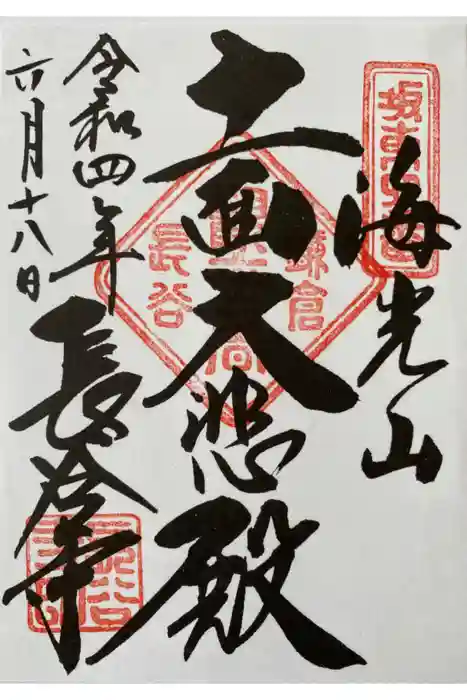 海光山
十一面大悲殿
令和四年
六月十八日
長谷寺
鎌倉
長谷